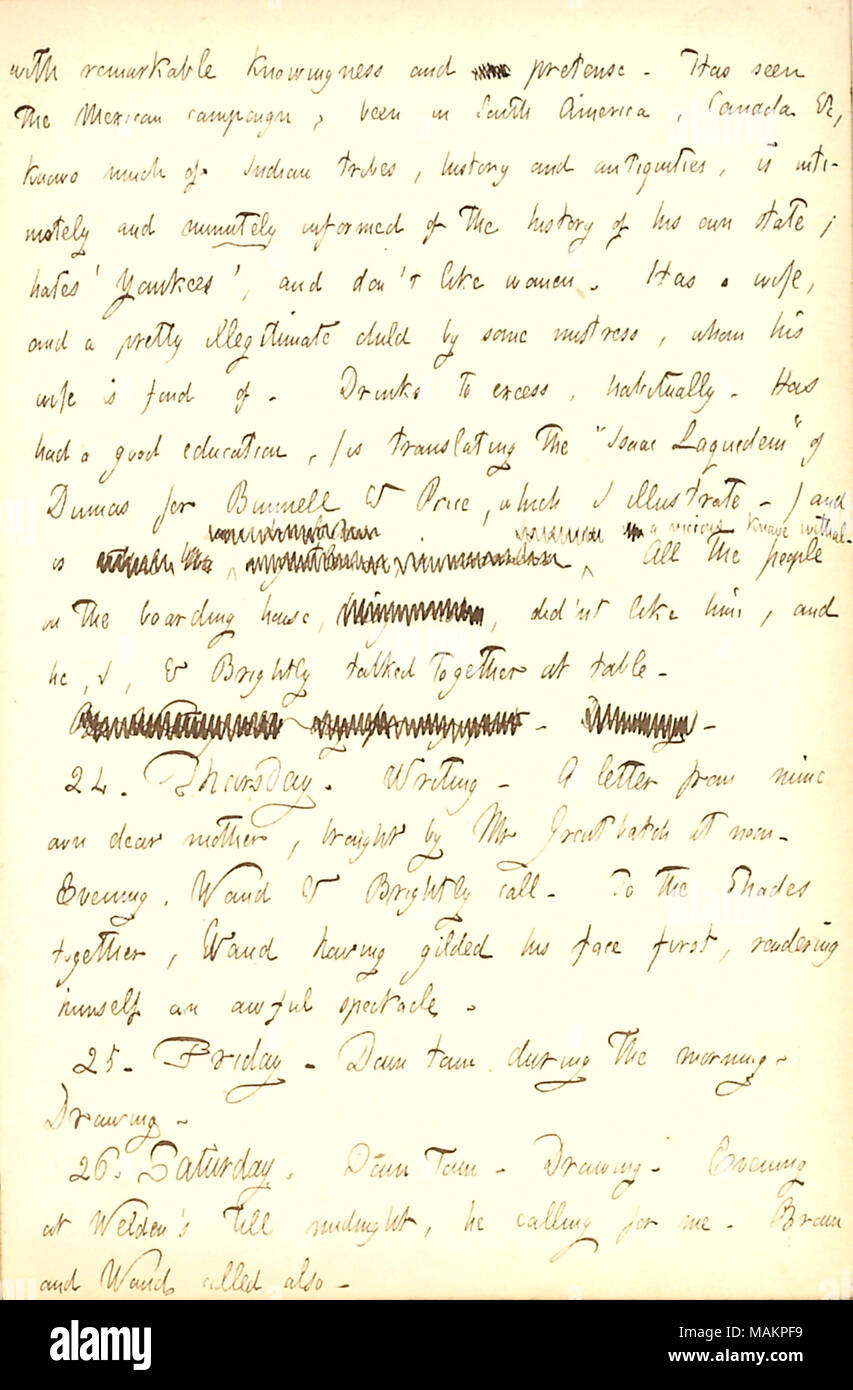 with remarkable knowingness and pretense. Has seen
the Mexican campaign, been in South America, Canada &c,
knows much of Indian tribes, history and antiquities, is inti-
mately and minutely informed of the history of his own state;
hates 'Yankees', and don't like women. Has a wife,
and a pretty illegitimate child by some mistress, whom his
wife is fond of. Drinks to excess, habitually. Has
had a good education, (is translating the "Isaac Laquedem" of
Dumas for Bunnell & Price, which I illustrate -) and
a vicious knave withal.
is All the people
in the boarding house, did'nt like him, and
he, I, & Brightly talked together at table.
24. Thursday. Writing. A letter from mine
own dear mother, brought by Mr Greatbatch at noon.
Evening, Waud & Brightly call. To the Shades
together, Waud having gilded his face first, rendering
himself an awful spectacle.
25. Friday. Down town during the morning.
Drawing.
26. Saturday. Down Town. Drawing. Evening
at Welden's till midnight, he calling for me. Brown
and Waud called also.
alamy
Image ID: MAKPF9
www.alamy.com